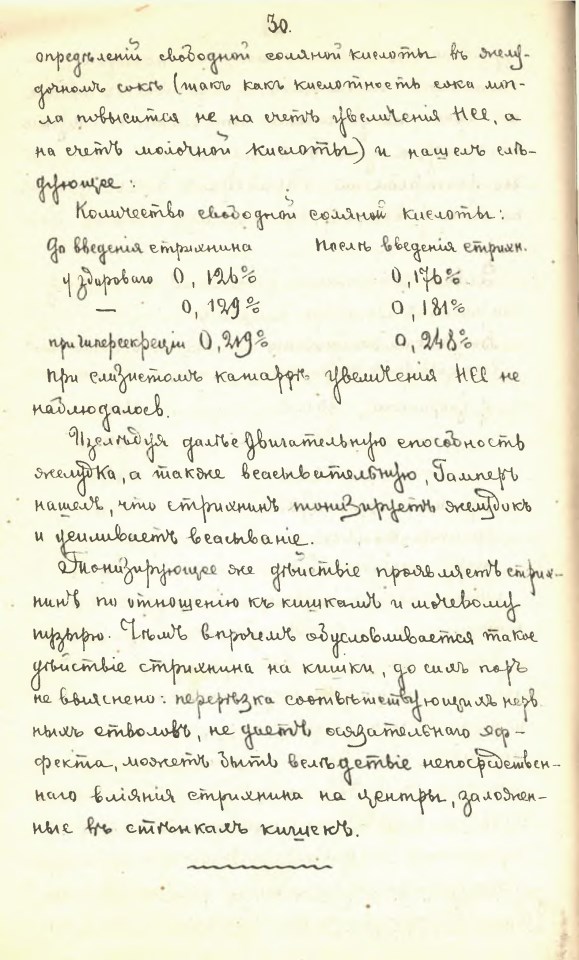 30.
опредѣленій свободной соляной кислоты въ желу-
дочномъ сокѣ (такъ какъ кислотность сока мог-
ла повысится не на счетъ увеличенія HCl, а
на счетъ молочной кислоты) и нашелъ слѣ-
дующее:
Количество свободной соляной кислоты:
До введенія стрихнина Послѣ введенія стрихн.
у здороваго 0,126% 0,176%
— 0,129% 0,181%
при гиперсекреціи 0,219% 0,248%
При слизистомъ катаррѣ увеличенія HCl не
наблюдалось.
Изслѣдуя далѣе двигательную способность
желудка, а также всасывательную, Гамперъ
нашелъ, что стрихнинъ тонизируетъ желудокъ
и усиливаетъ всасываніе.
Тонизирующее же дѣйствіе проявляетъ стрих-
нинъ по отношенію къ кишкамъ и мочевому
пузырю. Чѣмъ впрочемъ обусловливается такое
дѣйствіе стрихнина на кишки, до сихъ поръ
не выяснено: перерѣзка соотвѣтствующихъ нерв
ныхъ стволовъ, не даетъ осязательнаго эф-
фекта, можетъ быть вслѣдствіе непосредствен-
наго вліянія стрихнина на центры, заложен-
ные въ стѣнкахъ кишекъ.